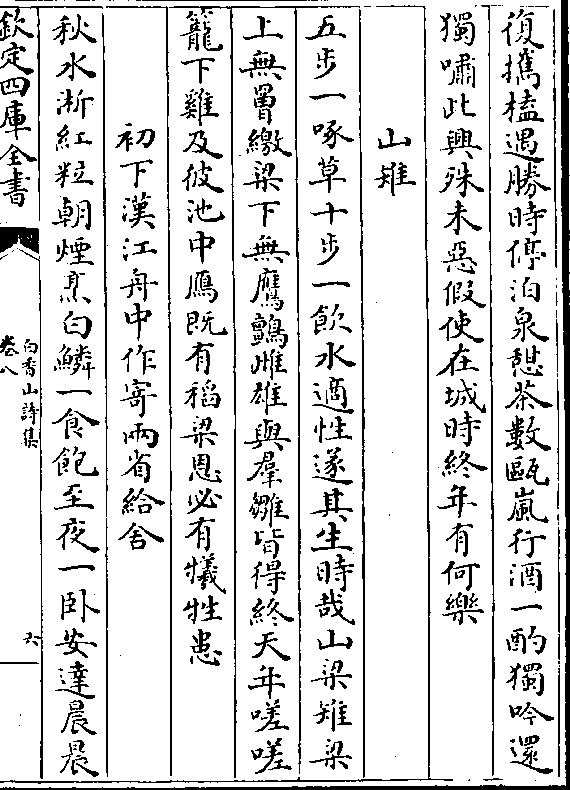 復攜榼遇勝時停泊泉憩茶數甌嵐行酒一酌獨吟還
獨嘯此興殊未惡假使在城時終年有何樂
山雉
五步一啄草十步一飲水適性遂其生時哉山梁雉梁
上無罾繳梁下無鷹鸇雌雄與羣雛皆得終天年嗟嗟
籠下雞及彼池中鴈既有稻梁恩必有犧牲患
初下漢江舟中作寄兩省給舍
秋水淅紅粒朝煙烹白鱗一食飽至夜一卧安達晨晨
欽定四庫全書
白香山詩集
卷八
六